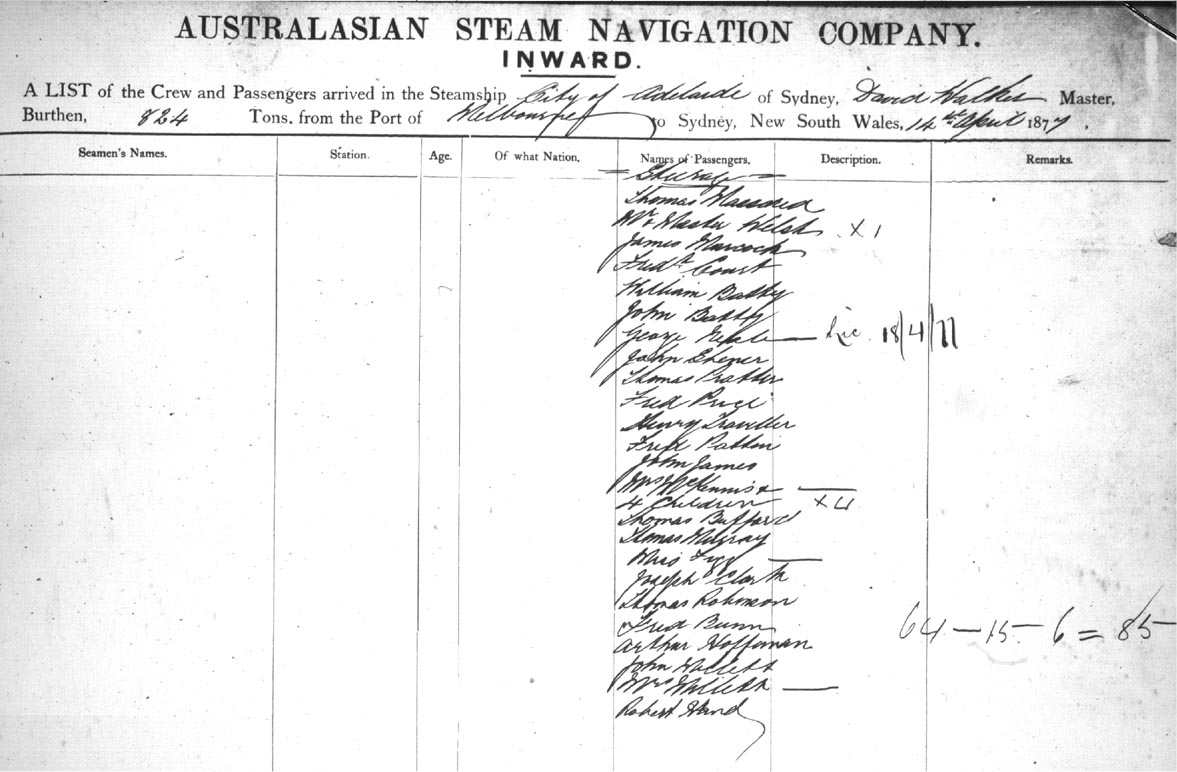 AUSTRALASIAN STEAM NAVIGATION COMPANY.
INWARD.
A LIST of the Crew and Passengers arrived in the Steamship City of Adelaide of Sydney, David Walker Master,
Burthen, 824 Tons. from the Port of Melbourne to Sydney, New South Wales, 14th April 1877.
Seamen's Names. Station. Age. Of what Nation. Names of Passengers. Description. Remarks.
Steerage
Thomas
Mr & Master Welsh X 1
James
Fredk Court
William Batty
John Batty
George 18/4/77
John
Thomas
Fred Price
Henry
Fred Patton
John James
Mrs McKennis &
4 Children X 4
Thomas Bufford
Thomas Murray
Joseph Clark
Thomas Robinson
Fred Bunn 64 - 15 - 6 = 85
Arthur Hoffman
John Willett
Mrs Willett
Robert Hand